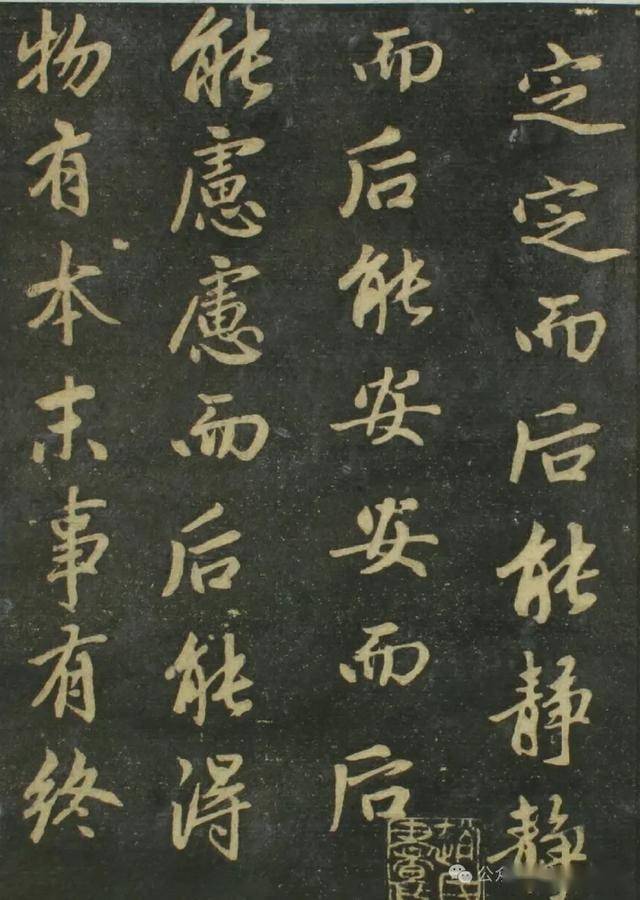 定定而后能静静
而后能安安而后
能慮慮而后能得
物有本末事有終
公众